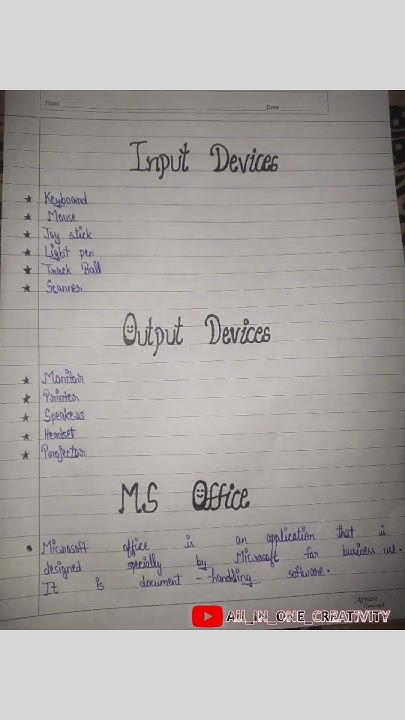 Topic
Date
Input Devices
★ Keyboard
★ Mouse
★ Joy stick
★ Light pen
★ Track Ball
★ Scanner
Output Devices
★ Monitor
★ Printer
★ Speakers
★ Headset
★ Projector
M.S Office
• Microsoft office is an application that is
designed specially by Microsoft for business use.
It is document - handling software.
All_IN_ONE_CREATIVITY